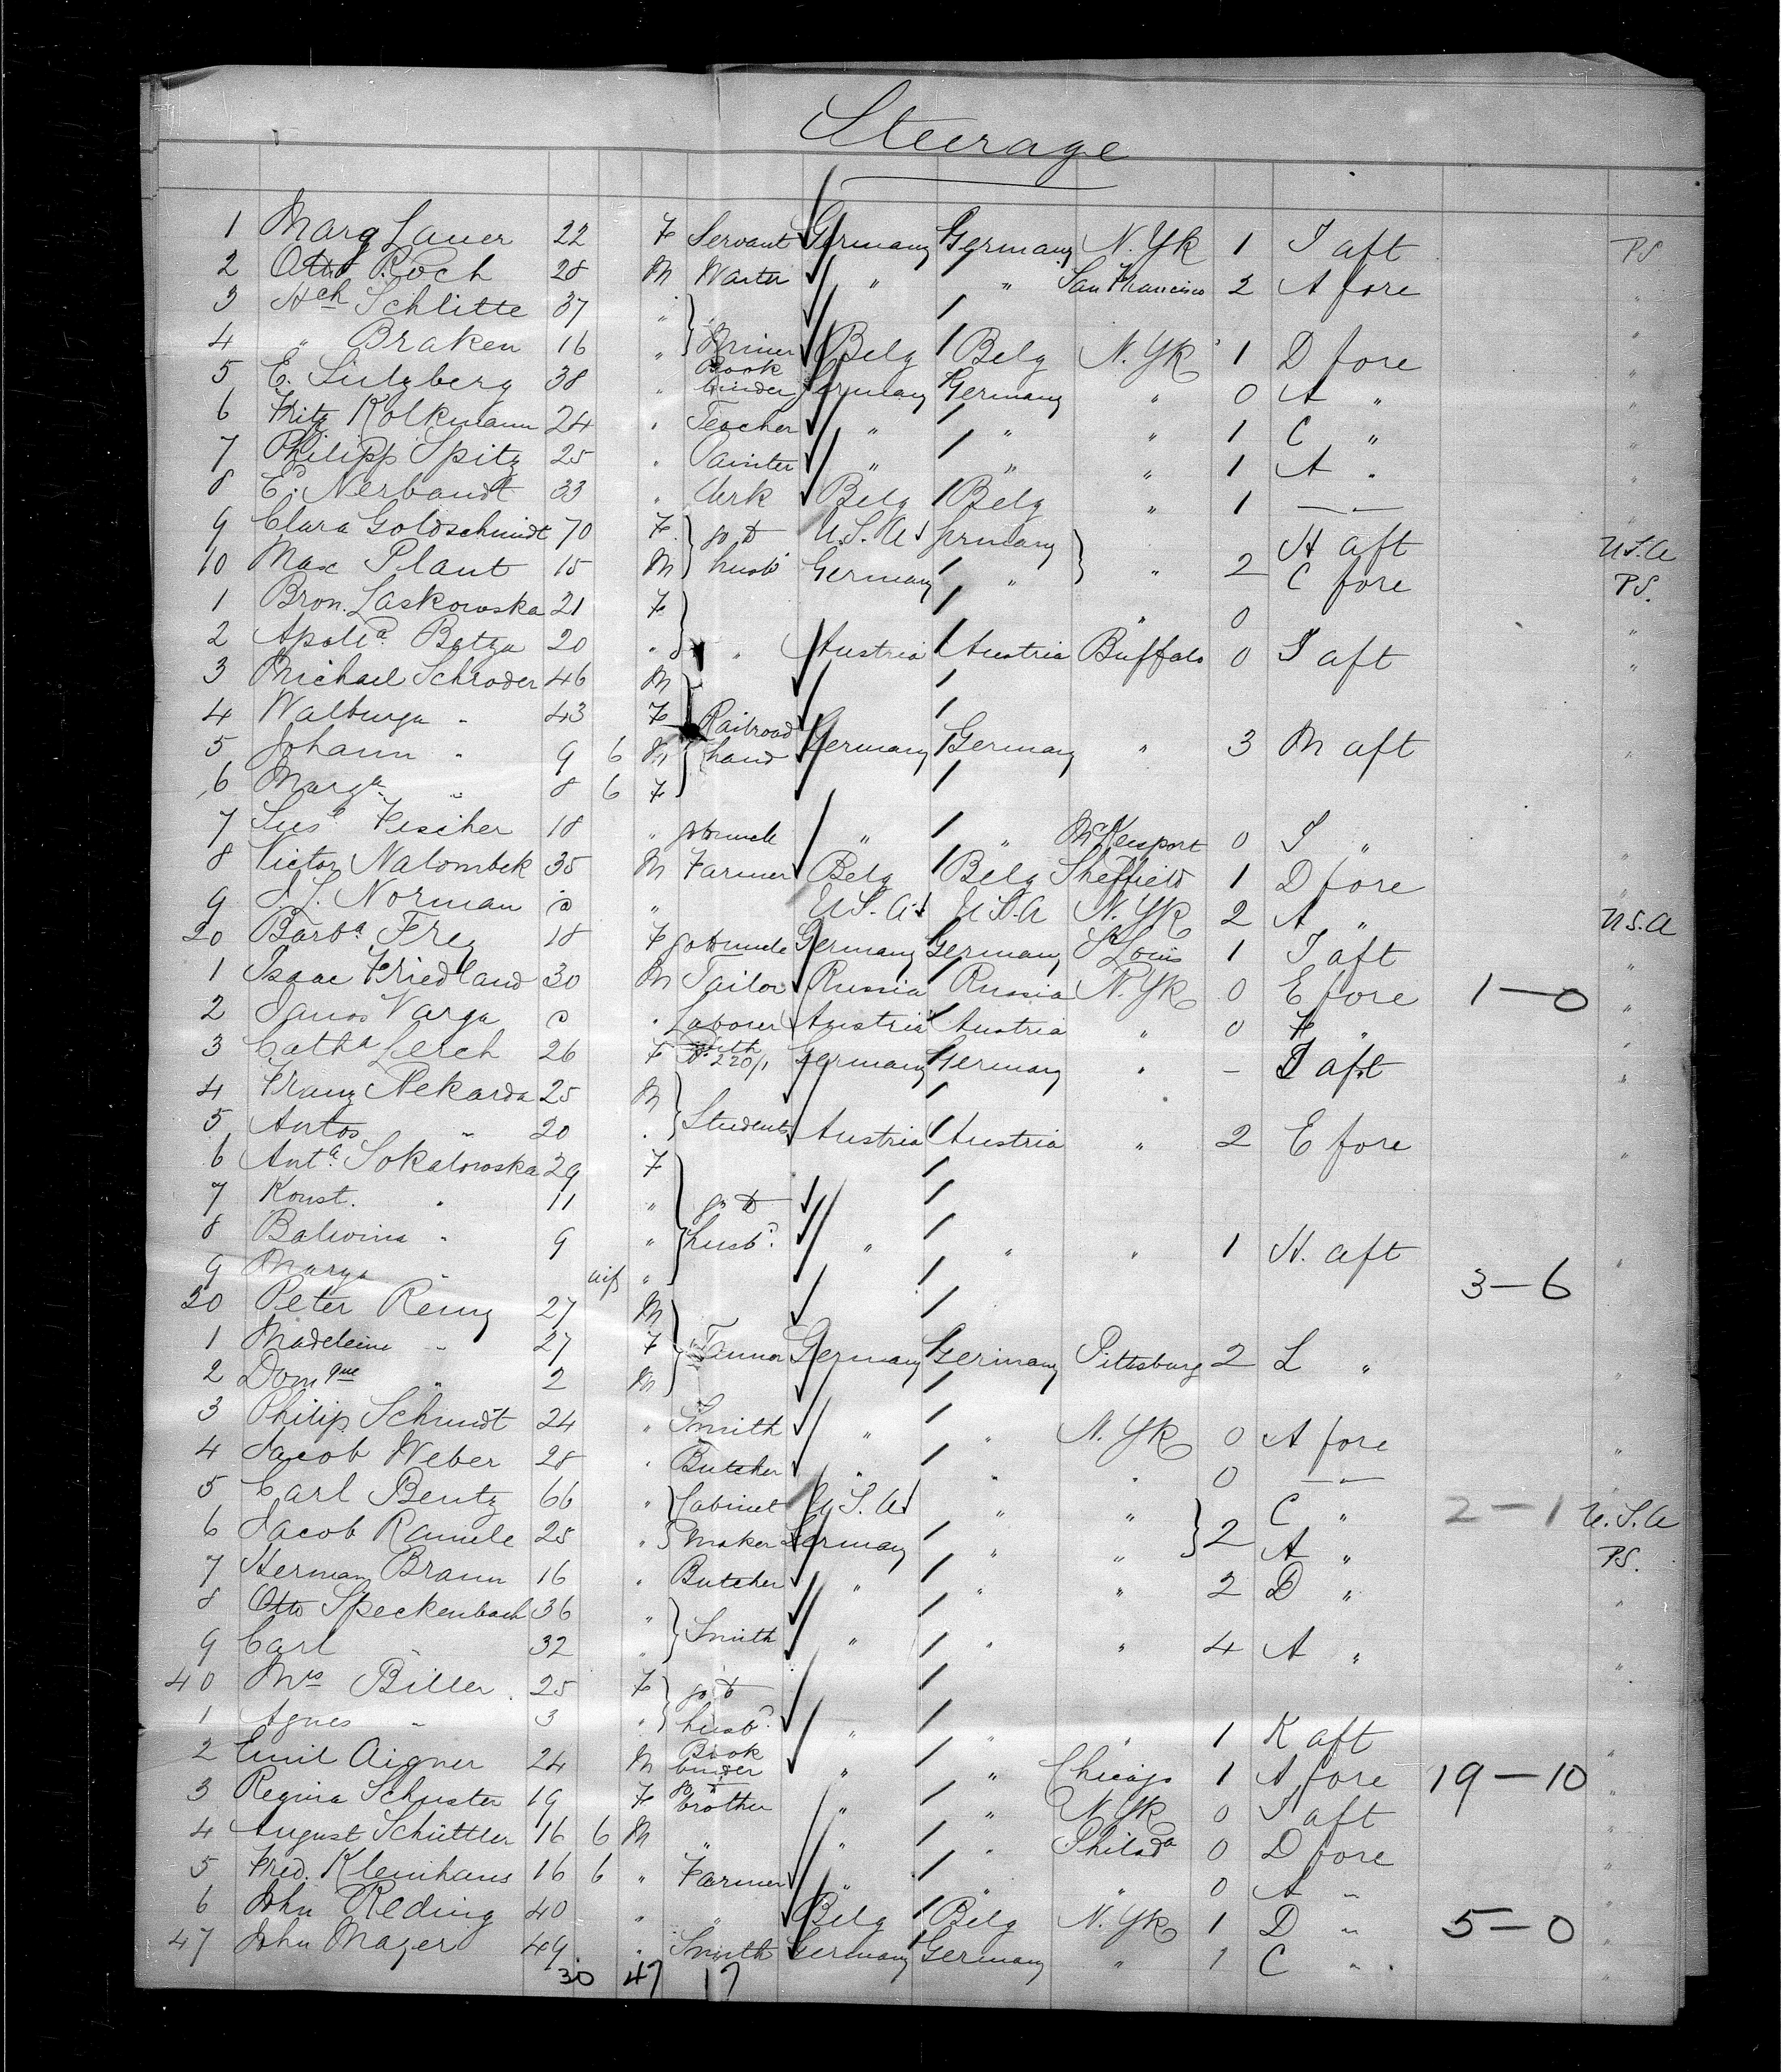 Steerage
1 Marg Lauer 22 F Servant Germany Germany N.Yk 1 I aft PS
2 Otto Roch 28 M Waiter " " San Francisco 2 A fore "
3 Hch Schlitte 37 "
4 " Braken 16 " Miner Belg Belg N.Yk 1 D fore "
5 E. Sulzberg 38 " Book binder Germany Germany " 0 A " "
6 Fritz Kolkmann 24 " Teacher " " " 1 C " "
7 Philipp Spitz 25 " Painter " " " 1 A " "
8 E. Nerbandt 33 " Clerk Belg Belg " 1 — — "
9 Clara Goldschmidt 70 F go to U.S.A Germany H aft U.S.A
10 Max Plaut 15 M husbd Germany " " 2 C fore PS.
1 Bron. Laskowska 21 F " 0 "
2 Apolla Batza 20 " " Austria Austria Buffalo 0 I aft "
3 Michael Schroder 46 M
4 Walburga " 43 F Railroad
5 Johann " 9 6 M hand Germany Germany " 3 M aft "
6 Marga " 8 6 F
7 Susa Fischer 18 " go to uncle " " McKeesport 0 I " "
8 Victor Nalombek 35 M Farmer Belg Belg Sheffield 1 D fore "
9 J. Norman " U.S.A U.S.A N.Yk 2 A " U.S.A
20 Barba Frey 18 F go to uncle Germany Germany St Louis 1 I aft "
1 Isaac Friedland 30 M Tailor Russia Russia N.Yk 0 E fore 1—0 "
2 Janos Varga " Laborer Austria Austria " 0 F " "
3 Catha Lerch 26 F with 220/1 Germany Germany " – I aft "
4 Franz Nekarda 25 M
5 Antos " 20 " Students Austria Austria " 2 E fore "
6 Anta Sokalowska 29 F
7 Konst. " 11 " go to
8 Balwina " 9 " husbd. " " " 1 H. aft "
9 Marya " "
3—6
20 Peter Remy 27 M
1 Madeleine " 27 F Tanner Germany Germany Pittsburg 2 L "
2 Domque " 2 M "
3 Philip Schmidt 24 " Smith " " N.Yk 0 A fore
4 Jacob Weber 28 " Butcher " " " 0 — — "
5 Carl Bentz 66 " Cabinet U.S.A " " C " 2—1 U.S.A
6 Jacob Ramele 25 " maker Germany " " 2 A " PS.
7 Herman Braun 16 " Butcher " " " 2 D " "
8 Otto Speckenbach 36 "
9 Carl " 32 " Smith " " " 4 A " "
40 Mrs Biller 25 F go to
1 Agnes " 3 " husbd. " " 1 K aft
2 Emil Aigner 24 M Book binder " " Chicago 1 A fore 19—10 "
3 Regina Schuster 19 F go to brother " " N.Yk 0 I aft "
4 August Schüttler 16 6 M " " " Philada 0 D fore "
5 Fred. Kleinhans 16 6 " Farmer " " " 0 A " "
6 John Reding 40 " " Belg Belg N.Yk 1 D " 5—0 "
47 John Mazer 49 " Smith Germany Germany " 1 C " "
30 47 17